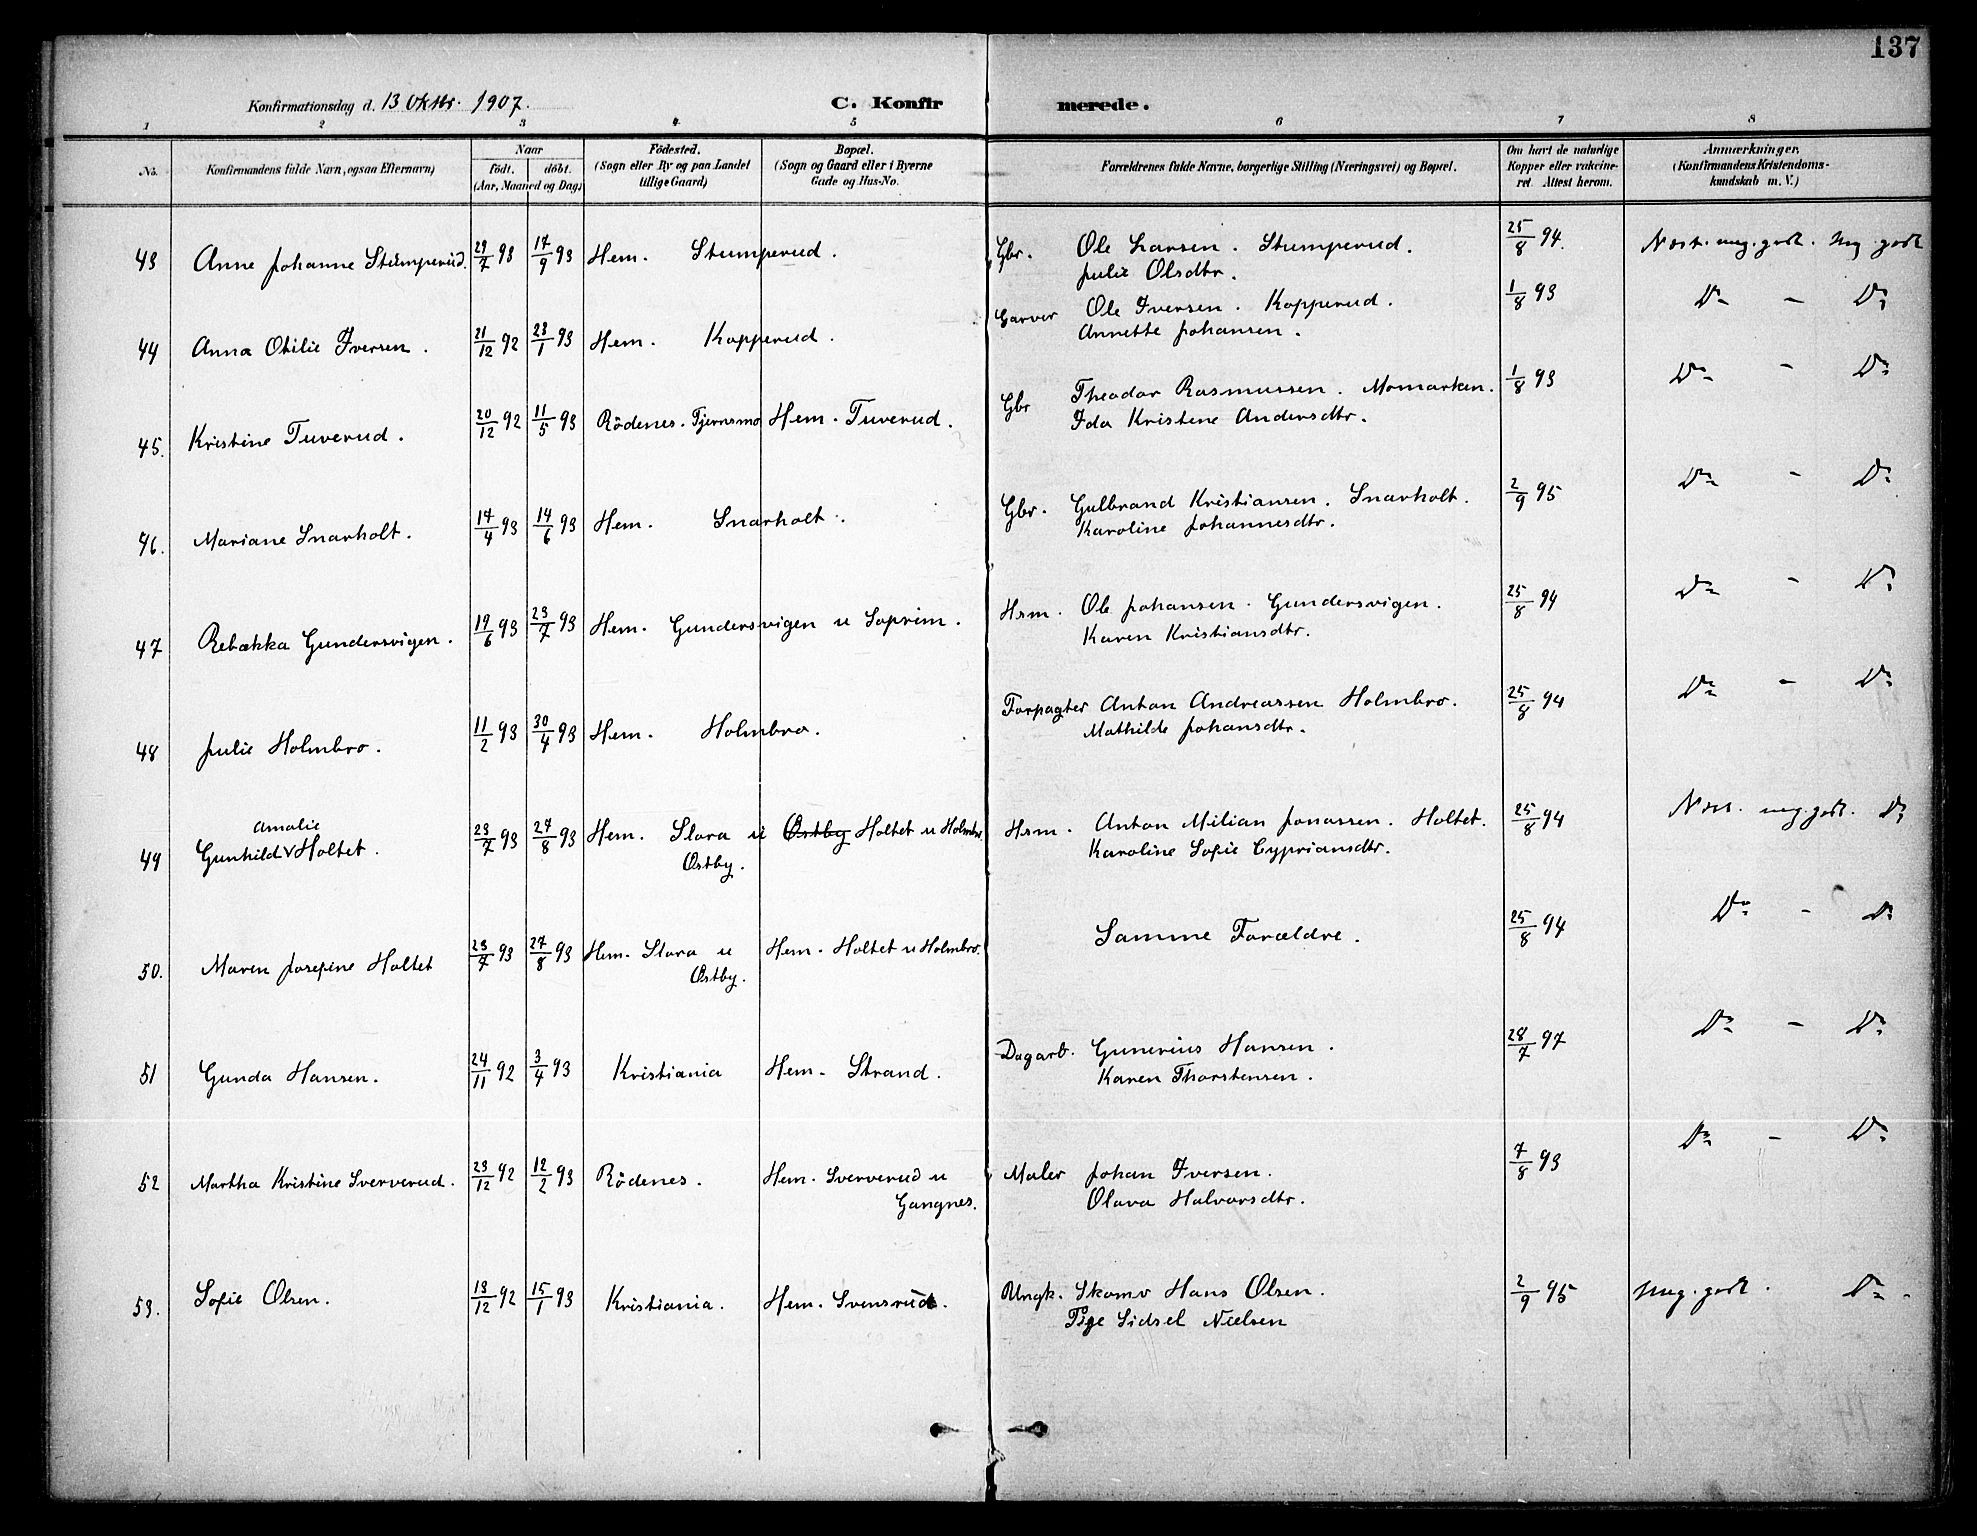 137
Konfirmationsdag d. 13 Oktbr. 1907.
C. Konfirmerede.
1 2 3 4 5 6 7 8
No. Konfirmandens fulde Navn, ogsaa Efternavn) Naar födt. döbt. (Aar, Maaned og Dag) Födested. (Sogn eller By og paa Landet tillige Gaard) Bopæl. (Sogn og Gaard eller i Byerne Gade og Hus-No. Forældrenes fulde Navne, borgerlige Stilling (Næringsvei) og Bopæl. Om havt de naturlige Kopper eller vakcineret. Attest herom. Anmærkninger, (Konfirmandens Kristendomskundskab m. V.)
43 Anne Johanne Stumperud. 29/7 93 17/9 93 Hem. Stumperud. Gbr. Ole Larsen. Stumperud. 25/8 94. Nost. meg. godt. Mg. godt
Julie Olsdtr.
44 Anna Otilie Iversen. 21/12 92 23/1 93 Hem. Kopperud. Garver Ole Iversen. Kopperud. 1/8 93 Do - Do
Annette Johansen.
45. Kristine Tuverud. 20/12 92 11/5 93 Rödenes. Tjernsmo Hem. Tuverud. Gbr Theodor Rasmussen. Momarken. 1/8 93 Do - Do
Ida Kristine Andersdtr.
46. Mariane Snarholt. 17/4 93 14/6 93 Hem. Snarholt. Gbr. Gulbrand Kristiansen. Snarholt. 2/9 95 Do - Do
Karoline Johannesdtr.
47 Rebækka Gundersvigen. 19/6 93 23/7 93 Hem. Gundersvigen u Soprim. Hsm. Ole Johansen. Gundersvigen. 25/8 94 Do - Do
Karen Kristiansdtr.
48 Julie Holmbro. 11/2 93 30/4 93 Hem. Holmbro. Forpagter Anton Andreassen Holmbro. 25/8 94 Do - Do
Mathilde Johansdtr.
Amalie
49 Gunhild V Holtet. 23/7 93 27/8 93 Hem. Slora u Østby Holtet u Holmbro. Hsm. Anton Milian Jonassen. Holtet. 25/8 94 Nost. meg. godt. Do
Østby. Karoline Sofie Cypriansdtr.
50. Maren Josefine Holtet 23/7 93 27/8 93 Hem. Slora u Hem. Holtet u Holmbro. Samme Forældre. 25/8 94 Do - Do
Østby.
51 Gunda Hansen. 24/11 92 3/4 93 Kristiania Hem. Strand. Dagarb. Gunerius Hansen. 28/7 97 Do - Do
Karen Thorstensen.
52 Martha Kristine Sververud. 23/12 92 12/2 93 Rödenes. Hem. Sververud u Maler Johan Iversen. 7/8 93 Do - Do
Gangnes. Olava Halvorsdtr.
53. Sofie Olsen. 13/12 92 15/1 93 Kristiania. Hem. Svensrud. Ungk. Skomv Hans Olsen. 2/9 95 Meg. godt. Do.
Pige Sidsel Nielsen